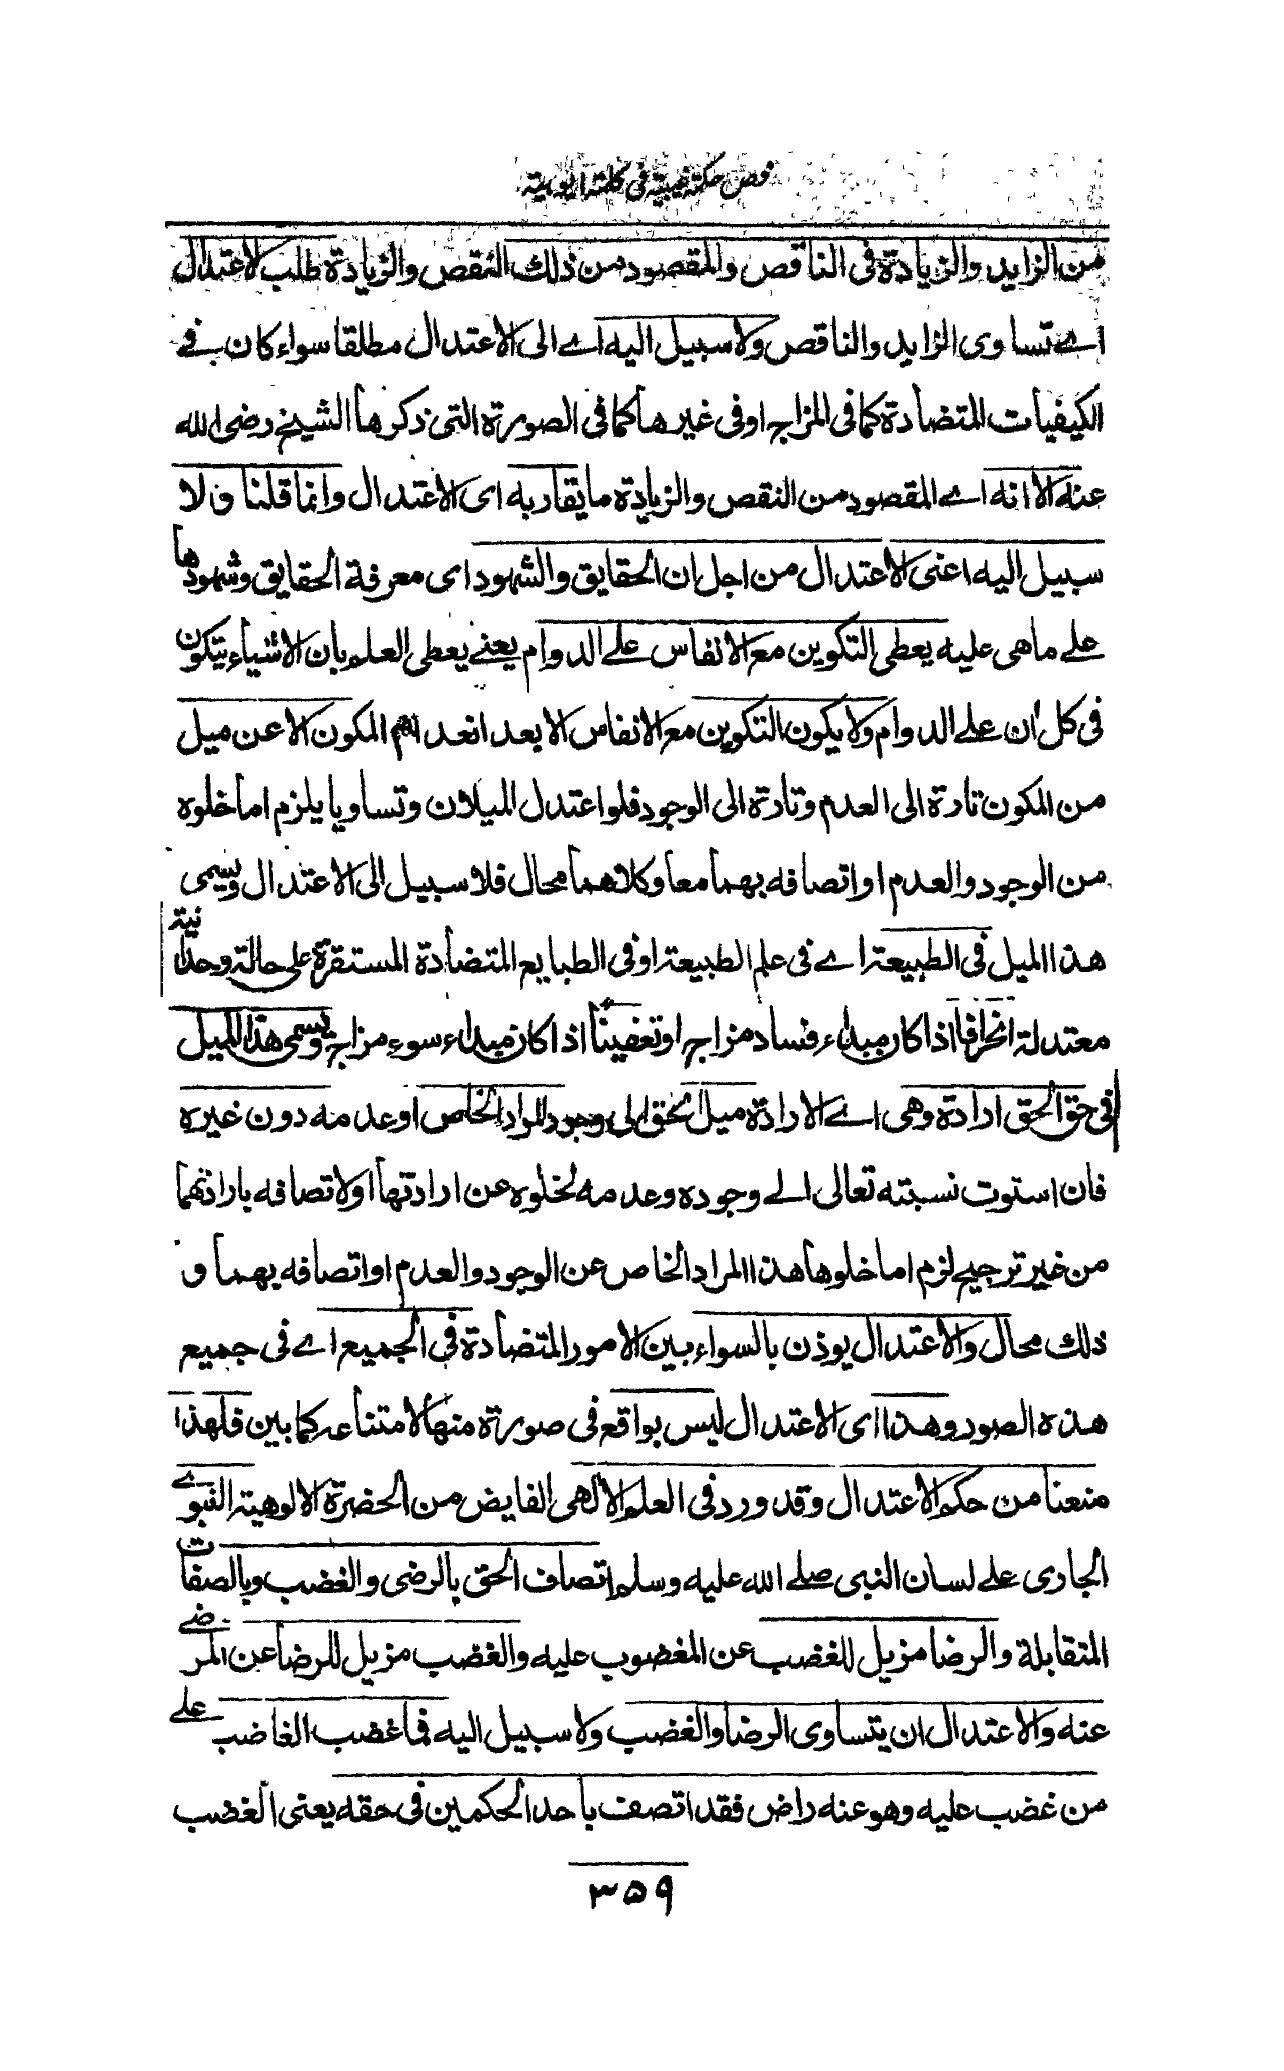 فص حكمة غيبية في كلمة ايوبية
من الزايد والزيادة في الناقص والمقصود من ذلك النقص والزيادة طلب الاعتدال
اے تساوى الزايد والناقص ولا سبيل اليه اے الى الاعتدال مطلقا سواء كان فے
الكيفيات المتضادة كما فى المزاج او فى غيرها كما فى الصورة التى ذكرها الشيخ رضى الله
عنه الا انه اے المقصود من النقص والزيادة ما يقاربه اى الاعتدال وانما قلنا ولا
سبيل اليه اعنى الاعتدال من اجل ان الحقايق والشهود اى معرفة الحقايق وشهودها
علے ماهى عليه يعطى التكوين مع الانفاس علے الدوام يعنے يعطى العلم بان الاشياء يتكون
فى كل ان علے الدوام ولا يكون التكوين مع الانفاس الا بعد انعدام المكون الا عن ميل
من المكون تارة الى العدم وتارة الى الوجود فلو اعتدل الميلان وتساويا يلزم اما خلوه
من الوجود والعدم او اتصافه بهما معا وكلاهما محال فلا سبيل الى الاعتدال ويسمى
هذا الميل فى الطبيعة اے فى علم الطبيعة او فى الطبايع المتضادة المستقرة على حالة وحدانية
معتدلة انحرافا اذا كان مبداء فساد مزاج او تعفينا اذا كان مبداء سوء مزاج ويسمى هذا الميل
فى حق الحق ارادة وهى اے الارادة ميل الحق الى وجود المراد الخاص او عدمه دون غيره
فان استوت نسبته تعالى الے وجوده وعدمه لخلوه عن ارادتها او لاتصافه بارادتهما
من غير ترجيح لزم اما خلوها هذا المراد الخاص عن الوجود والعدم او اتصافه بهما و
ذلك محال والاعتدال يوذن بالسواء بين الامور المتضادة فى الجميع اے فى جميع
هذه الصور وهذا اى الاعتدال ليس بواقع فى صورة منها لامتناعه كما بين فلهذا
منعنا من حكم الاعتدال وقد ورد فى العلم الالهى الفايض من الحضرة الالوهية النبوے
الجارى علے لسان النبى صلے الله عليه وسلم اتصاف الحق بالرضى والغضب وبالصفات
المتقابلة والرضا مزيل للغضب عن المغضوب عليه والغضب مزيل للرضا عن المرضے
عنه والاعتدال ان يتساوى الرضا والغضب ولا سبيل اليه فما غضب الغاضب علے
من غضب عليه وهو عنه راض فقد اتصف باحد الحكمين فى حقه يعنى الغضب
۳۵۹